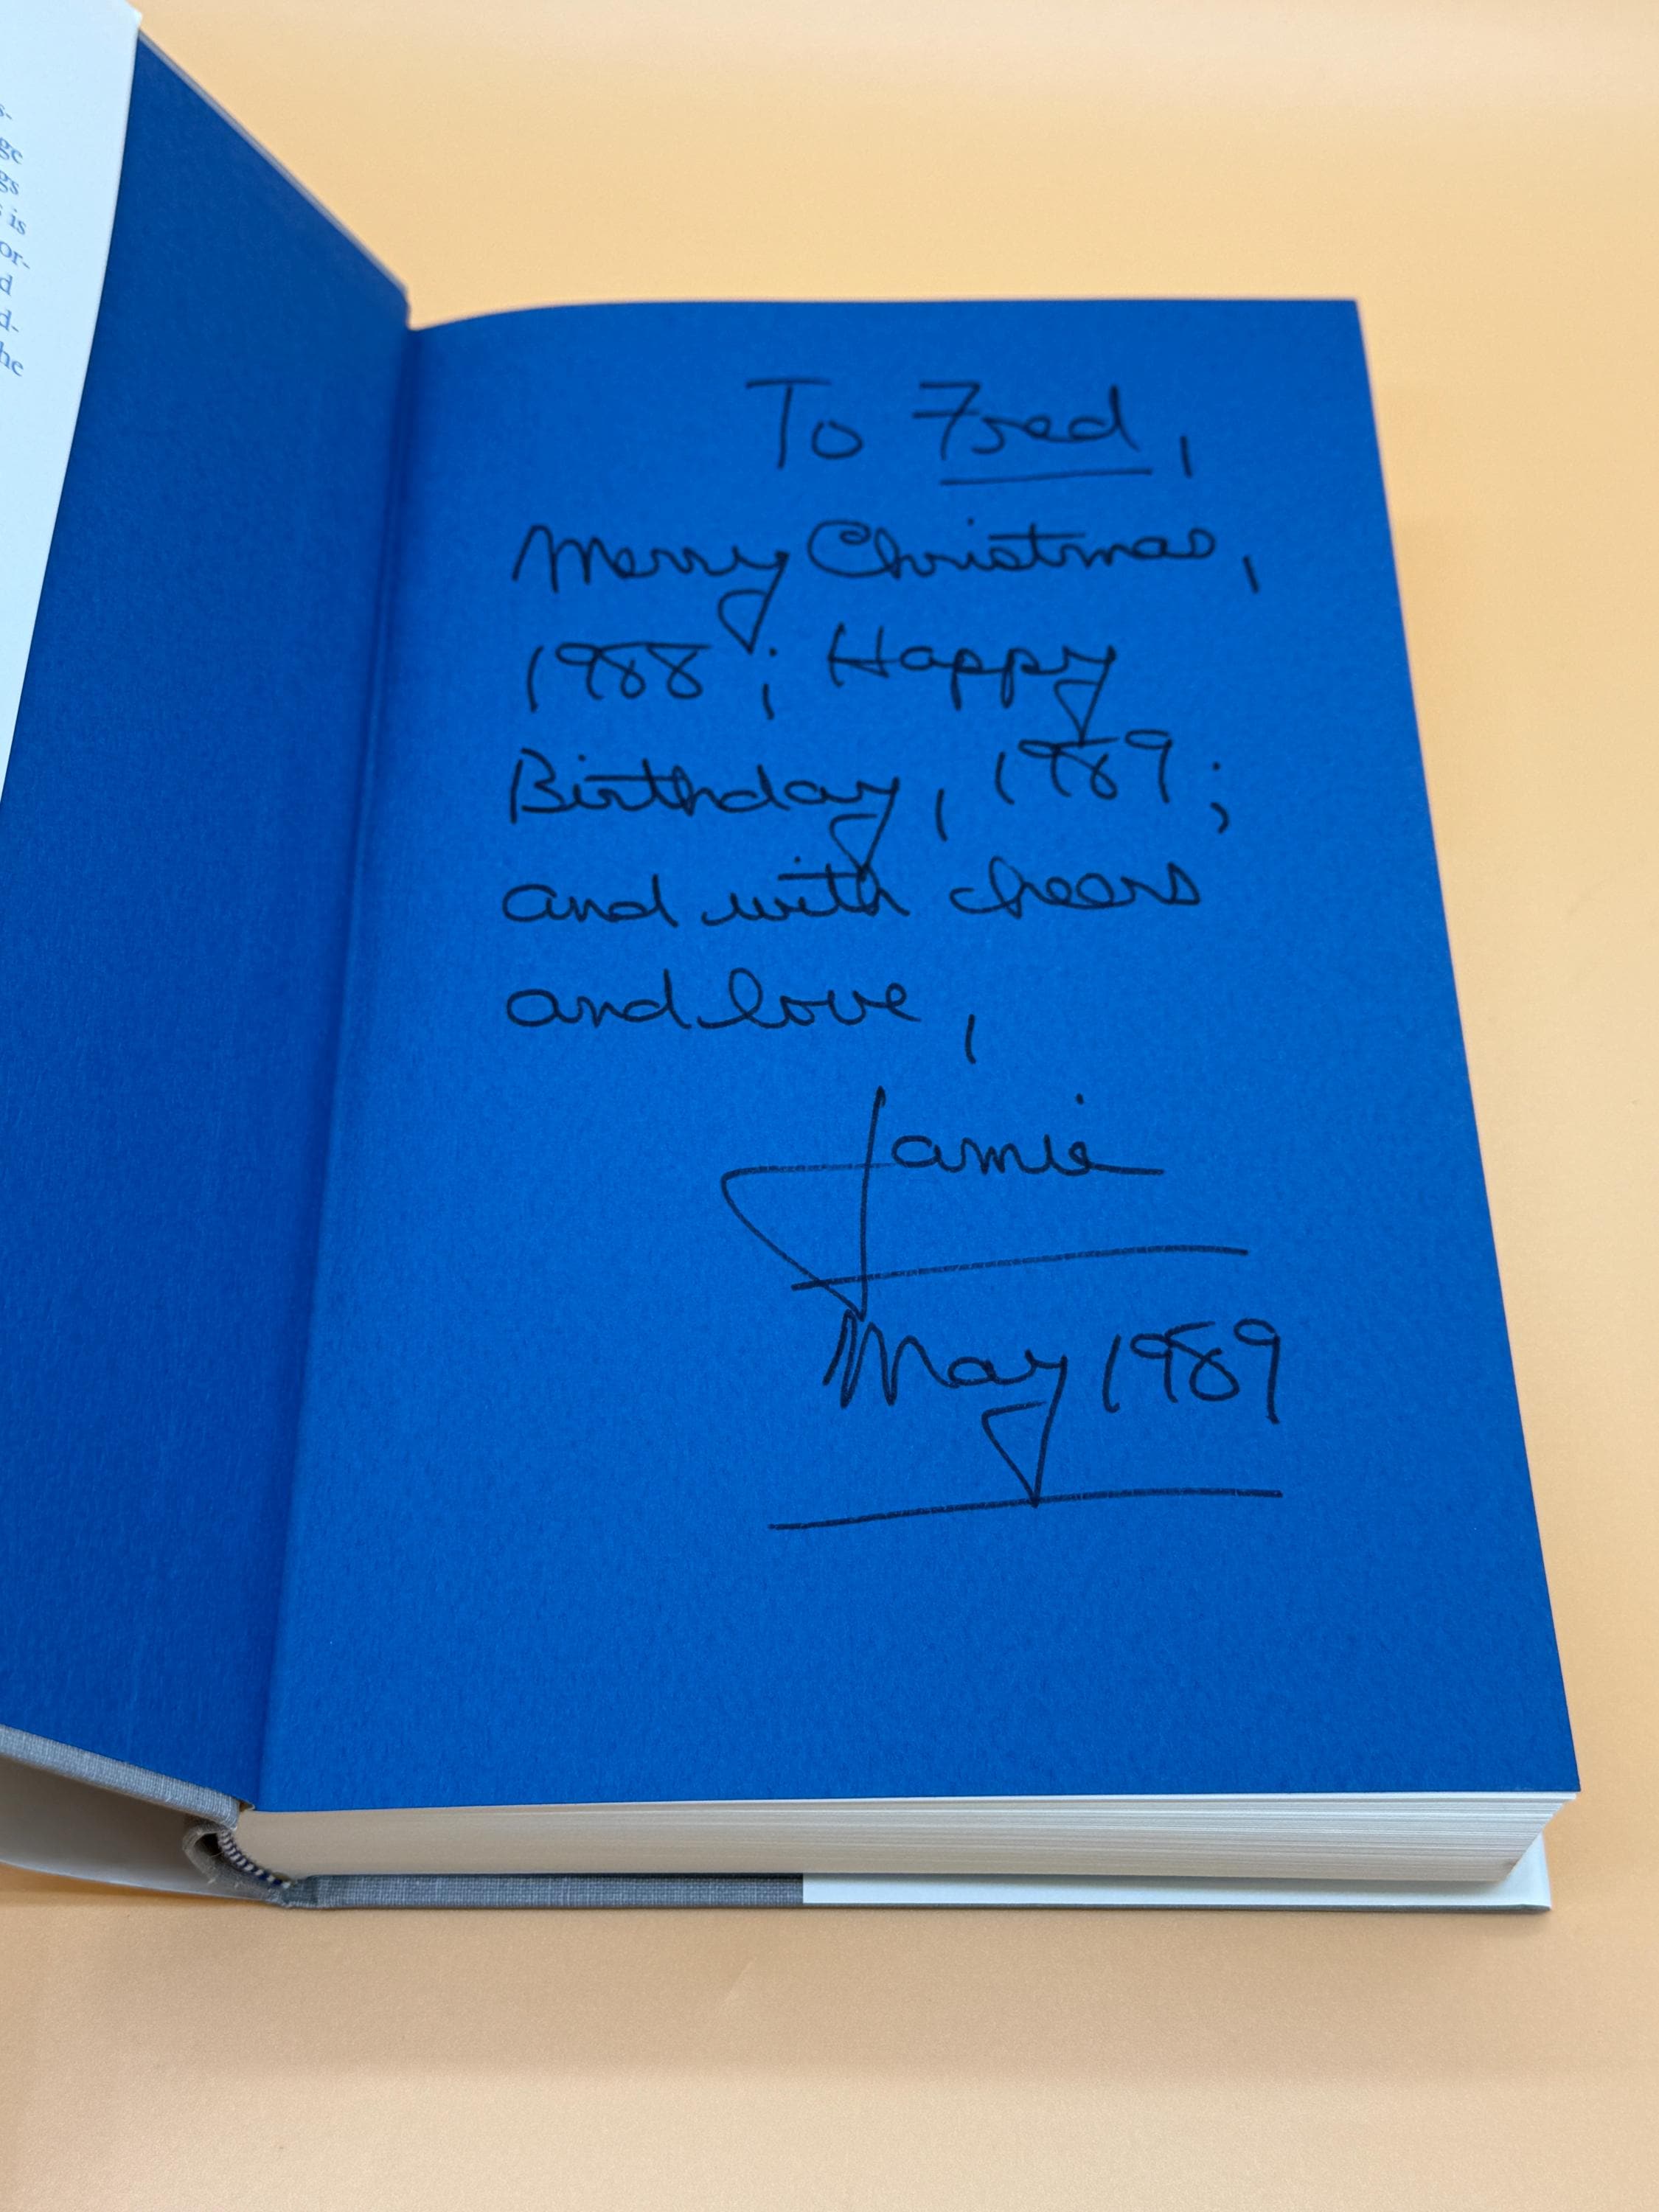 s-
ge
gs
is
or-
d
d-
he
To Fred,
Merry Christmas,
1988; Happy
Birthday, 1989;
and with cheers
and love,
Jamie
May 1989